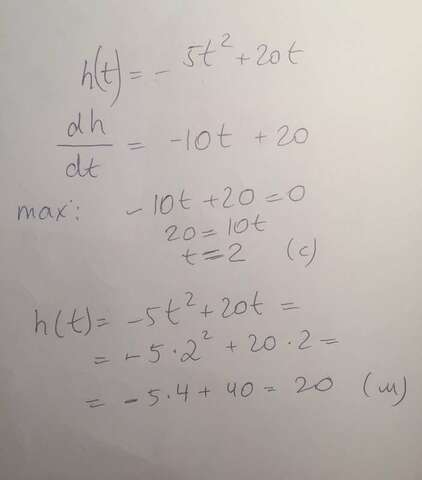 h(t) = - 5t² + 20t
dh/dt = -10t + 20
max: -10t + 20 = 0
20 = 10t
t = 2 (с)
h(t) = -5t² + 20t =
= -5 · 2² + 20 · 2 =
= -5 · 4 + 40 = 20 (м)